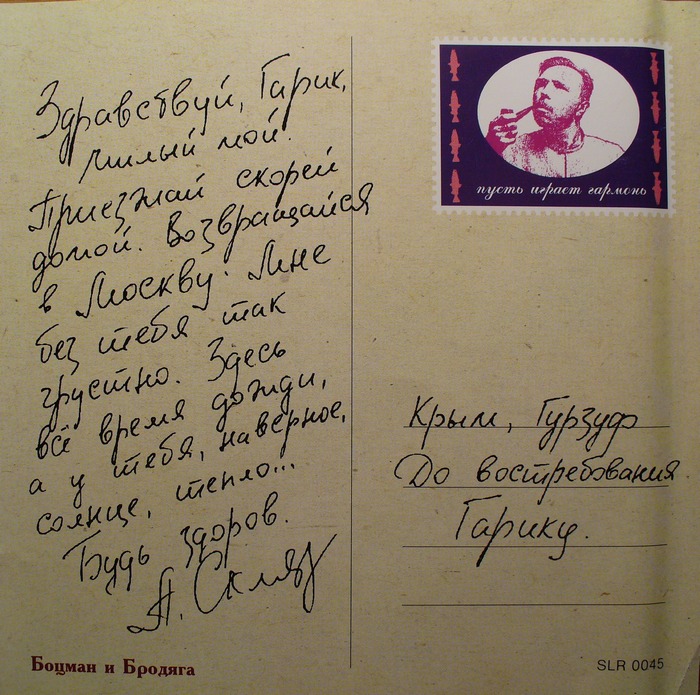 Здравствуй, Гарик,
милый мой.
Приезжай скорей
домой. Возвращайся
в Москву. Мне
без тебя так
грустно. Здесь
всё время дожди,
а у тебя, наверное,
солнце, тепло...
Будь здоров.
А. Скляр
пусть играет гармонь
Крым, Гурзуф
До востребования
Гарику.
Боцман и Бродяга
SLR 0045